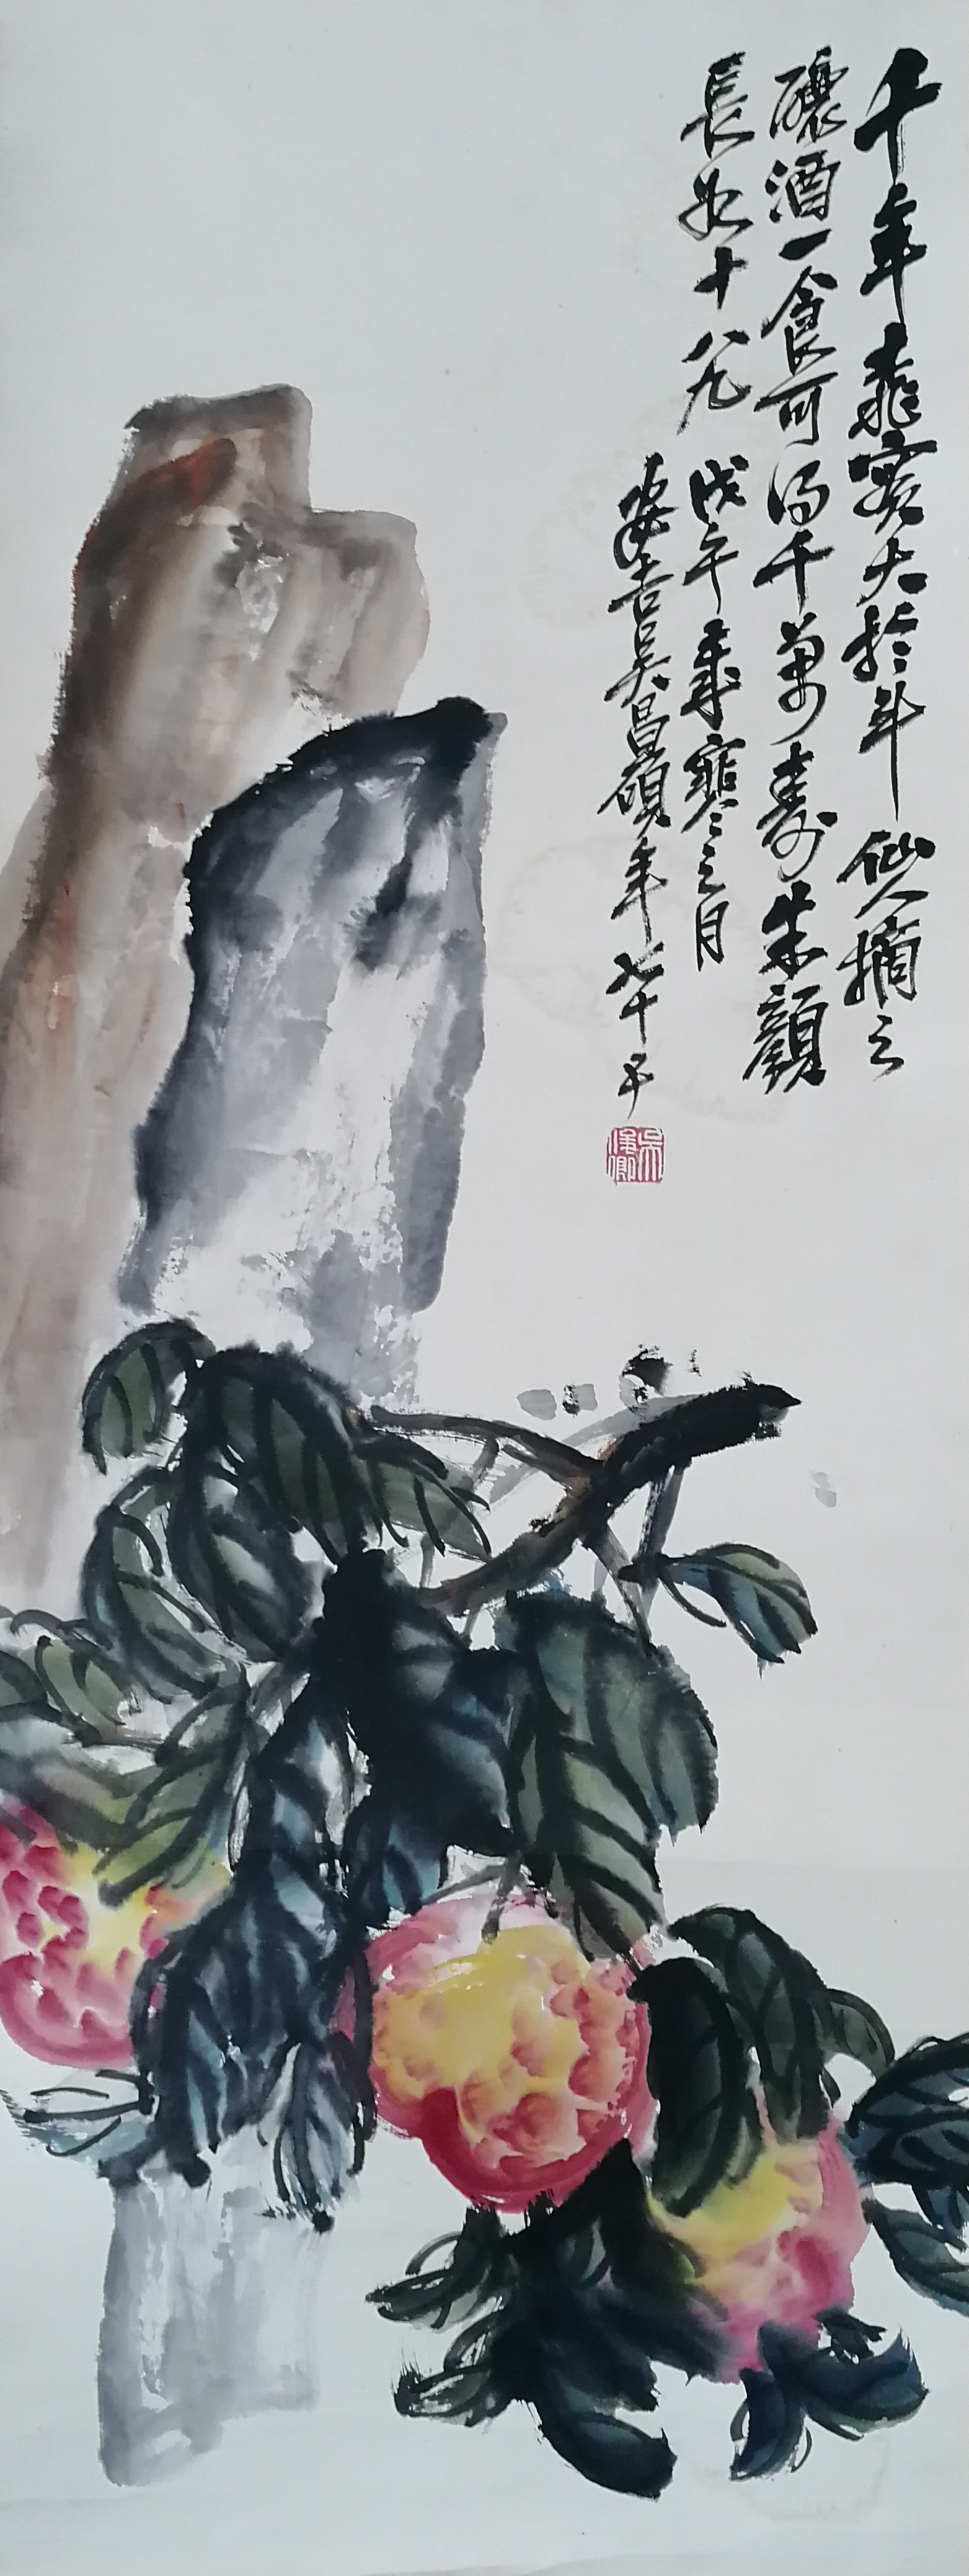 千年桃實大於斗仙人摘之
釀酒一食可得千萬壽朱顏
長如十八九 戊午歲寒之月
安吉吳昌碩年七十五
吳俊卿